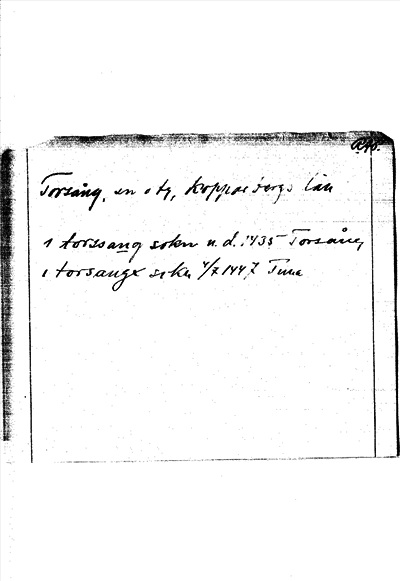 Torsång, sn o tg, Kopparbergs län
i torssang sokn u.d. 1435 Torsång
i torsange sokn 4/7 1447 Tuna